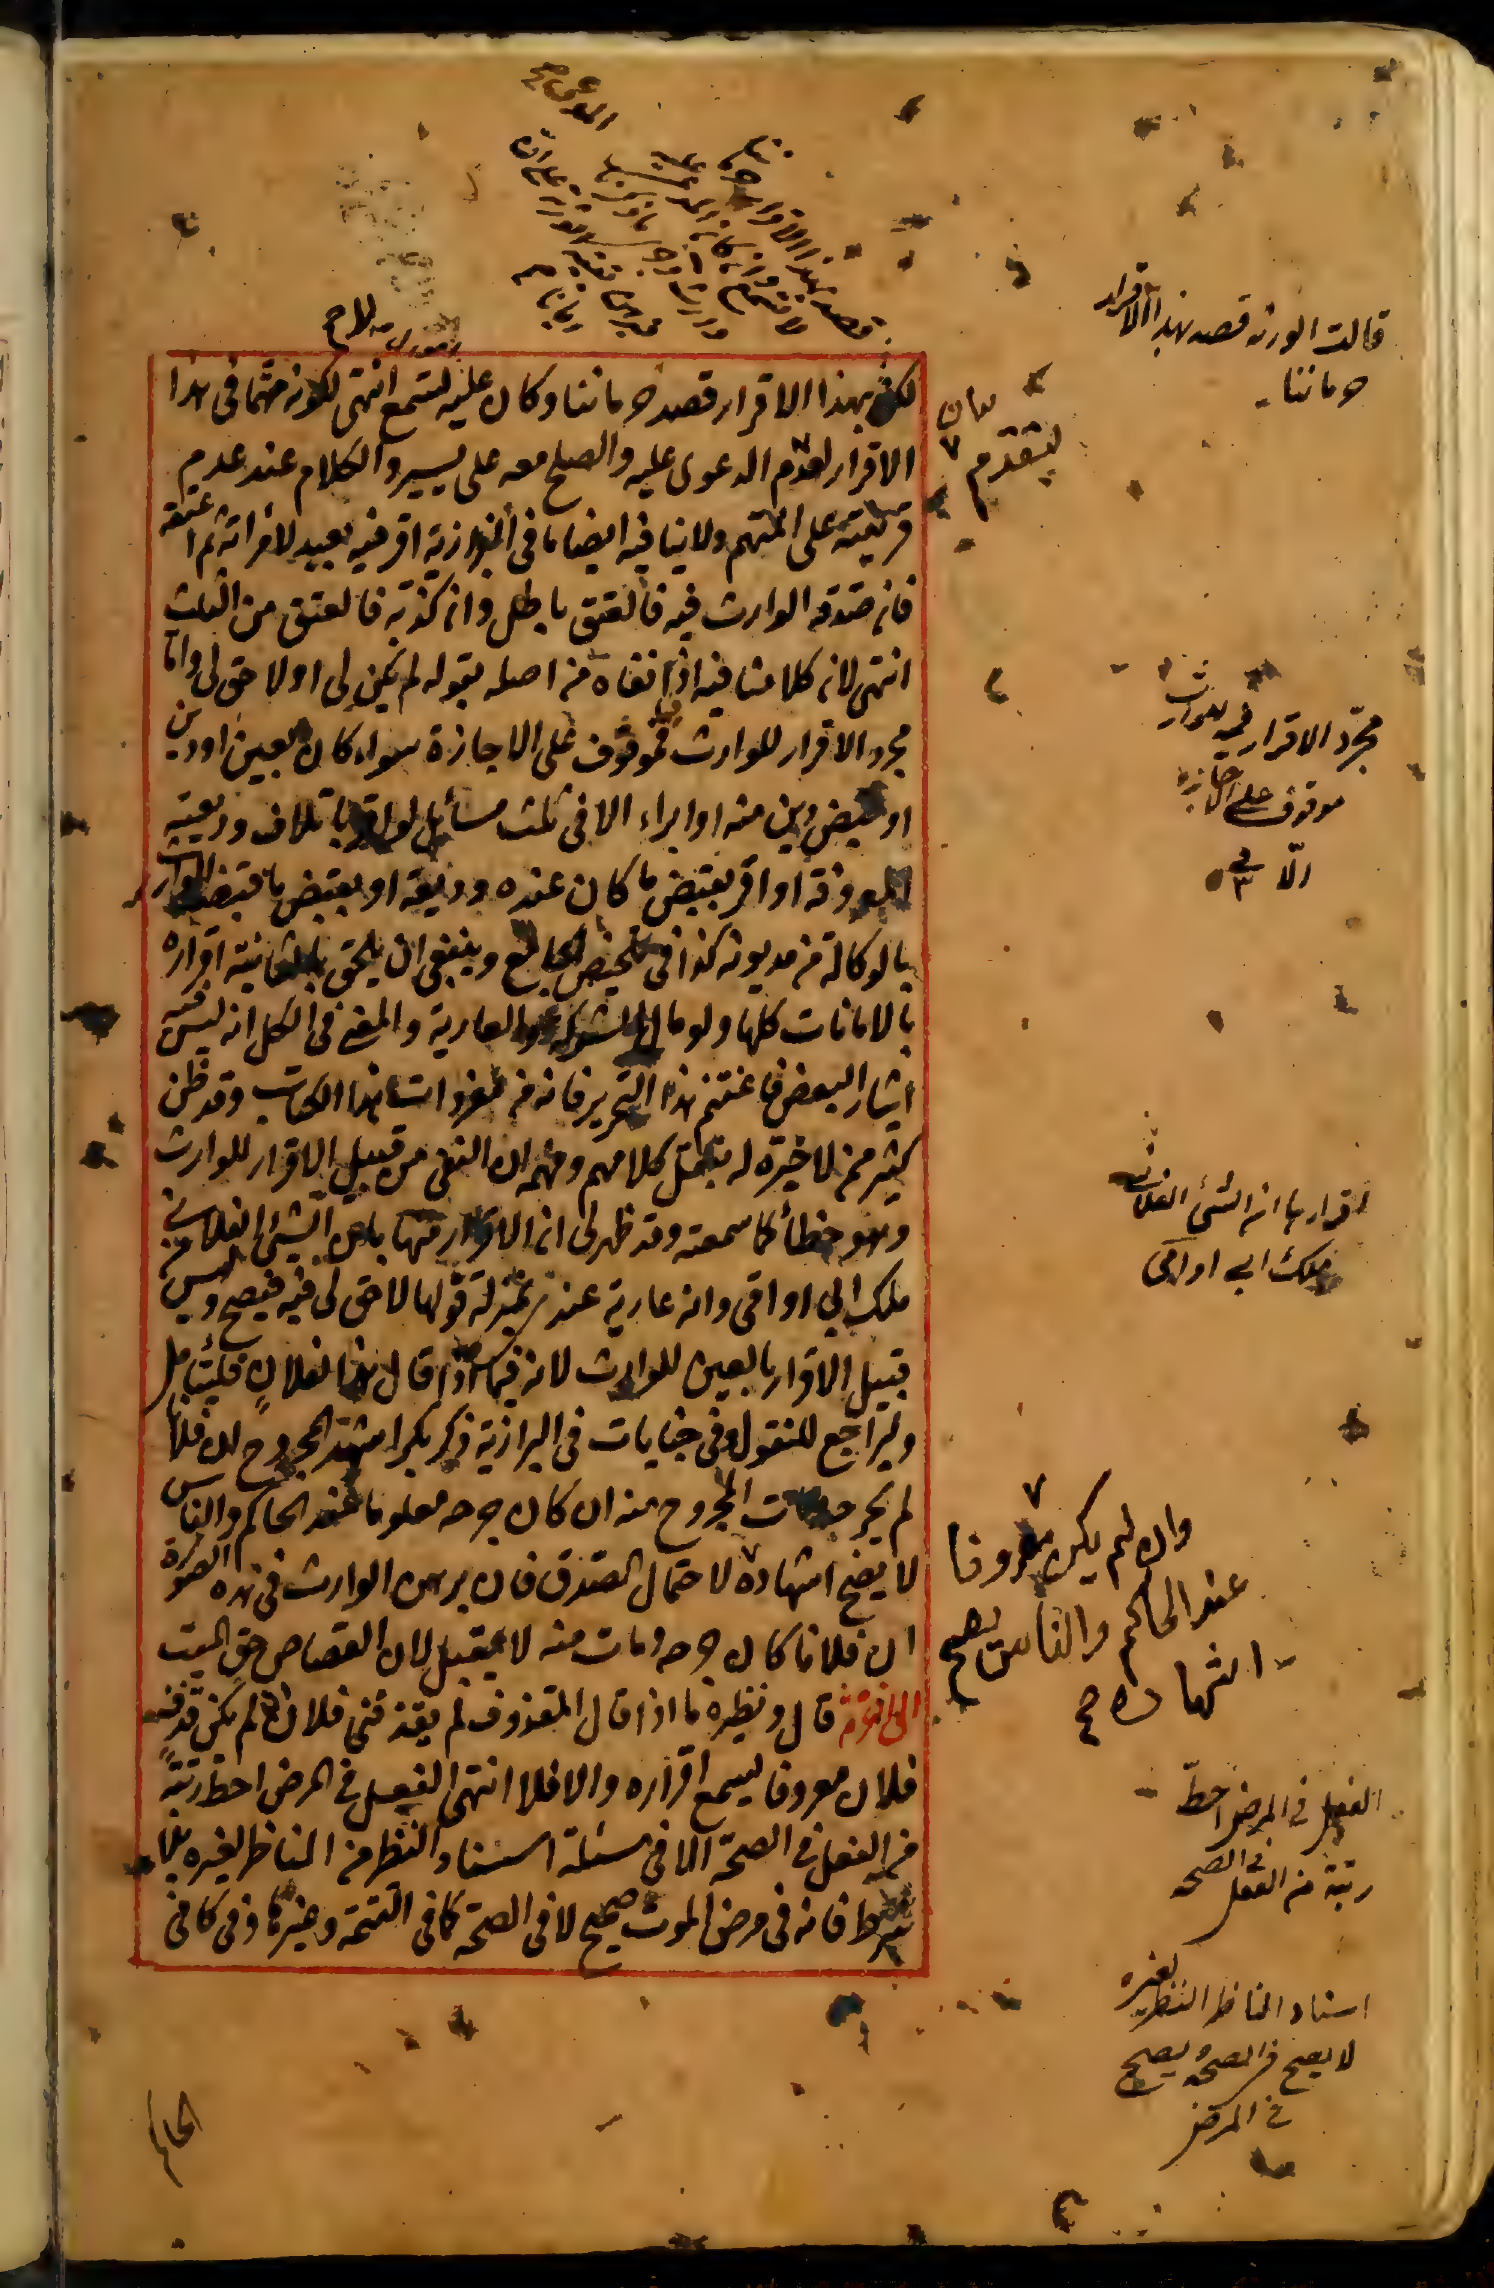 قالت الورثة قصد بهذا الاقرار
حرماننا
لكن بهذا الاقرار قصد حرماننا وكان عليه لتسمع انتهى لكونه متهما فى هذا
الاقرار لتقدم الدعوى عليه والصلح معه على يسير والكلام عند عدم
قرينة على المتهم ولا ينافيه ايضا ما فى البزازية اقر فيه بعبد لامراته ثم اعتقه
فان صدقه الوارث فيه فالعتق باطل وان كذبه فالعتق من الثلث
انتهى لان كلامنا فيه اذا نفاه من اصله بقوله لم يكن لى او لا حق لى واما
مجرد الاقرار للوارث فموقوف على الاجازة سواء كان بعين او دين
او قبض دين منه او ابراء الا فى ثلث مسائل لو اقر باتلاف وديعته
المعروفة او اقر بقبض ما كان عنده وديعة او بقبض ما قبضه الوارث
بالوكالة من مديونه كذا فى تلخيص الجامع وينبغى ان يلحق بالثانية اقراره
بالامانات كلها ولو مال الشركة والعارية والمعنى فى الكل انه ليس فيه
ايثار البعض فاغتنم هذا التحرير فانه من مفردات هذا الكتاب وقد ظن
كثير ممن لا خبرة له بنقل كلامهم وفهمه ان النفى من قبيل الاقرار للوارث
وهو خطأ كما سمعته وقد ظهر لى ان الاقرار منها بان الشئ الفلانى
ملك ابى او امى وانه عارية عندى بمنزلة قولها لا حق لى فيه فيصح وليس من
قبيل الاقرار بالعين للوارث لانه فيما اذا قال هذا لفلان فليتأمل
وليراجع للمنقول وفى جنايات فى البزازية ذكر بكر اشهد المجروح ان فلانا
لم يجرحه ومات المجروح منه ان كان جرحه معلوما عند الحاكم والناس
لا يصح اشهاده لاحتمال الصدق فان برهن الوارث فى هذه الصورة
ان فلانا كان جرحه ومات منه لا يقبل لان القصاص حق الميت
الى آخره ثم قال ونظيره ما اذا قال المقذوف لم يقذفنى فلان ان لم يكن قذف
فلان معروفا يسمع اقراره والا فلا انتهى الفعل فى المرض احط رتبة
من الفعل فى الصحة الا فى مسئلة اسناد النظر من الناظر لغيره بلا
شرط فانه فى مرض الموت صحيح لا فى الصحة كما فى التتمة وغيرها وفى كافى
لتقدم
مجرد الاقرار فيه للوارث
موقوف على الاجازة
الا فى ٣
اقرارها بان الشئ الفلانى
ملك ابى او امى
وان لم يكن معروفا
عند الحاكم والناس يصح
اشهاده صح
الفعل فى المرض احط
رتبة من الفعل فى الصحة
اسناد الناظر النظر لغيره
لا يصح فى الصحة ويصح
فى المرض
الحاكم